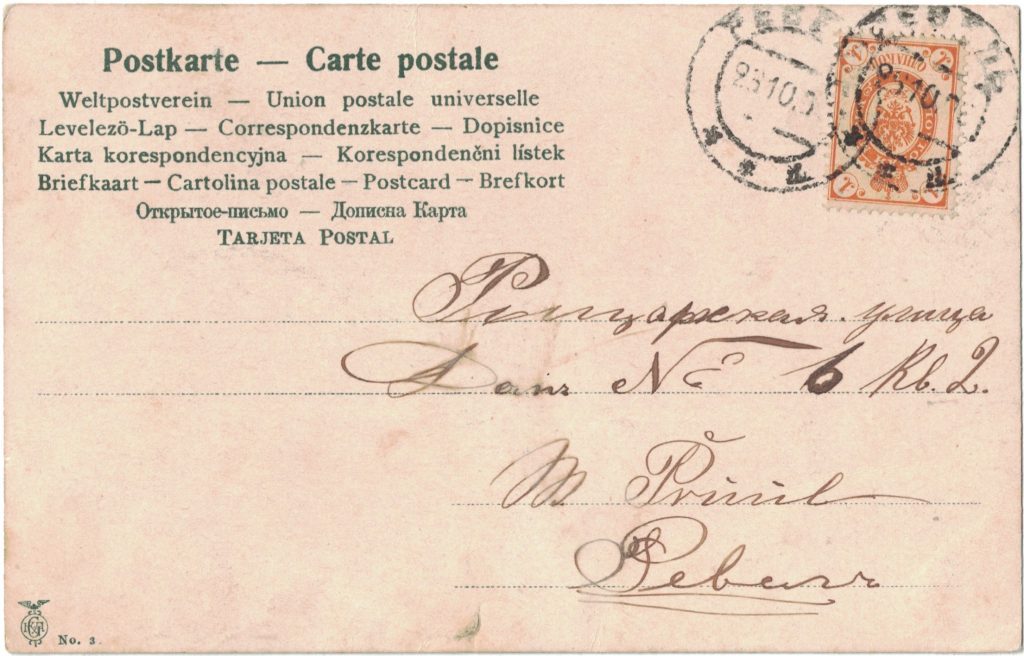 Postkarte — Carte postale
Weltpostverein — Union postale universelle
Levelező-Lap — Correspondenzkarte — Dopisnice
Karta korespondencyjna — Korespondenčni lístek
Briefkaart — Cartolina postale — Postcard — Brefkort
Открытое-письмо — Дописна Карта
TARJETA POSTAL
23.10.0
Рыцарская улица
Домъ № 6 Кв. 2.
M
Ревель
No. 3.